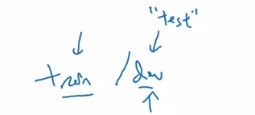 "test"
train / dev